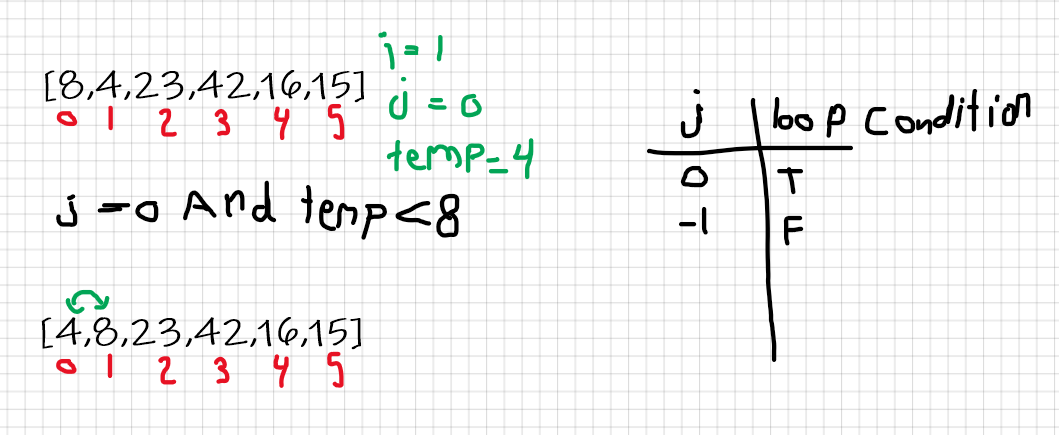 [8,4,23,42,16,15]
0 1 2 3 4 5
i = 1
j = 0
temp = 4
j = 0 And temp < 8
[4,8,23,42,16,15]
0 1 2 3 4 5
j loop condition
0 T
-1 F